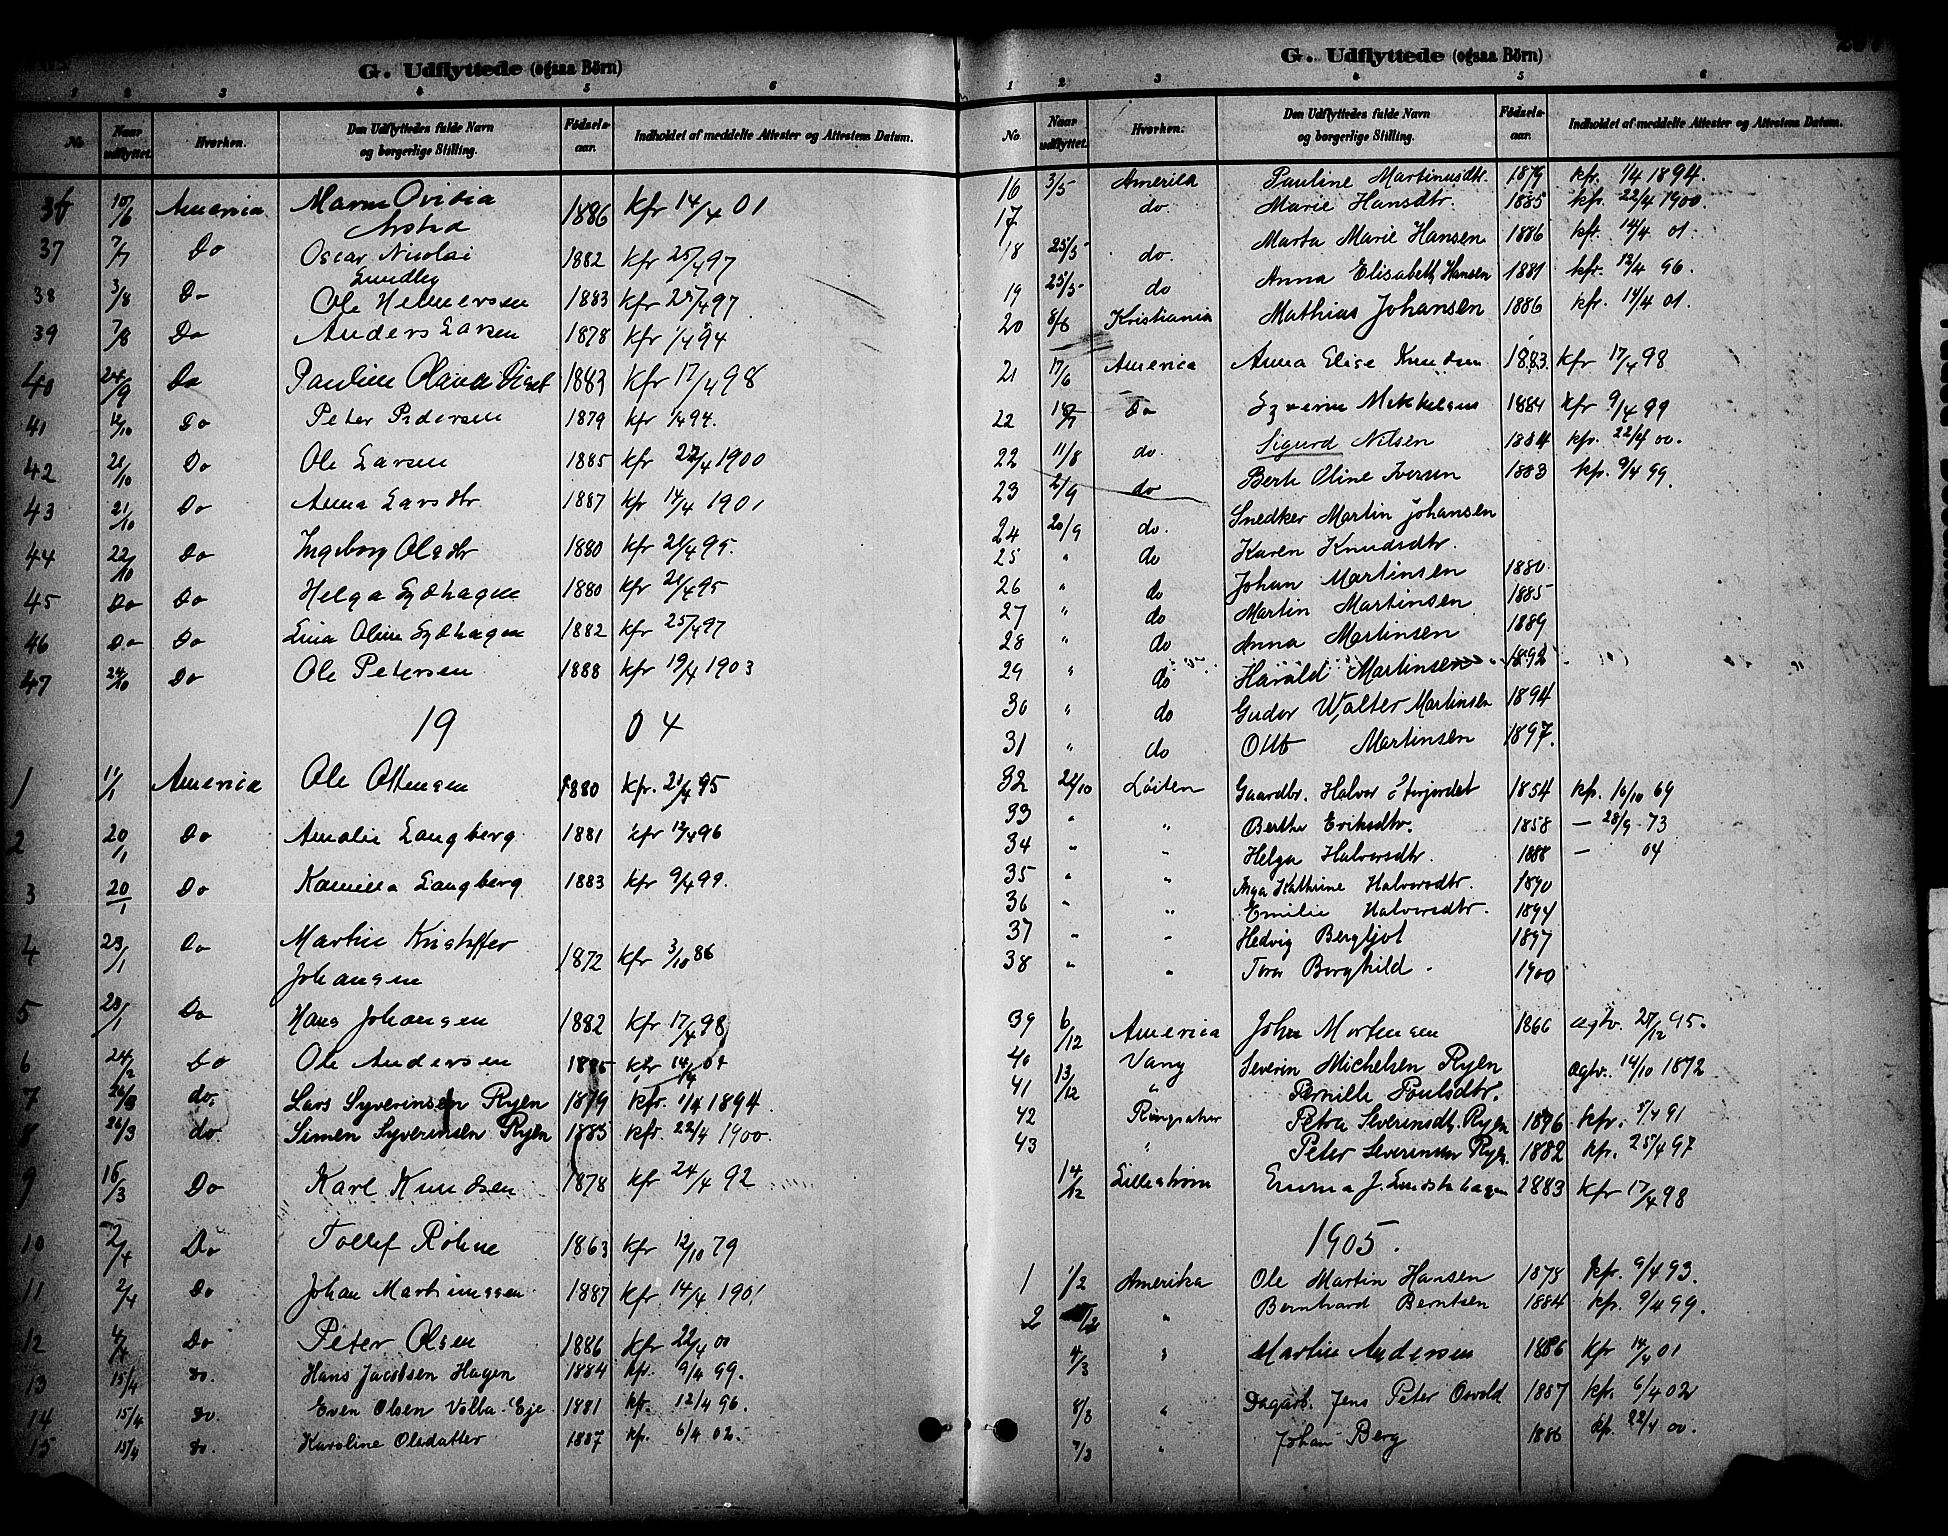 G. Udflyttede (ogsaa Börn)
1 2 3 4 5 6
No Naar udflyttet. Hvorhen. Den Udflyttedes fulde Navn og borgerlige Stilling. Födsels-aar. Indholdet af meddelte Attester og Attestens Datum.
36 10/6 America Maren Ovidia 1886 kfr 14/4 01
37 7/7 Do Oscar Nicolai 1882 kfr 25/4 97
Lundby
38 3/8 Do Ole Helmersen 1883 kfr 25/4 97
39 7/8 Do Anders Larsen 1878 kfr 1/4 94
40 24/9 Do Pauline Olava 1883 kfr 17/4 98
41 12/10 Do Peter Pedersen 1879 kfr 1/4 94.
42 21/10 Do Ole Larsen 1885 kfr 22/4 1900
43 21/10 Do Anna Larsdtr 1887 kfr 14/4 1901
44 22/10 Do Ingeborg Olsdtr 1880 kfr 21/4 95.
45 Do Do Helga Sydhagen 1880 kfr 21/4 95
46 Do Do Lina Oline Sydhagen 1882 kfr 25/4 97
47 24/10 Do Ole Petersen 1888 kfr 19/4 1903
1904
1 11/1 America Ole Ottensen 1880 kfr. 21/4 95
2 20/1 Do Amalie Langberg 1881 kfr 12/4 96
3 20/1 Do Kamilla Langberg 1883 kfr 9/4 99.
4 23/1 Do Martin Kristoffer
Johansen 1872 kfr 3/10 86
5 23/1 Do Hans Johansen 1882 kfr 17/4 98
6 24/2 Do Ole Andersen 1885 kfr 14/4
7 26/3 do. Lars Syverinsen Ryen 1879 kfr. 1/4 1894.
8 26/3 do. Simen Syverinsen Ryen 1885 kfr. 22/4 1900.
9 16/3 Do Karl Knudsen 1878 kfr 24/4 92
10 2/4 Do Tollef Röhne 1863 kfr 12/10 79
11 2/4 Do Johan Martinussen 1887 kfr 14/4 1901
12 4/4 Do Peter Olsen 1886 kfr 22/4 00
13 15/4 do. Hans Jacobsen Hagen 1884 kfr. 9/4 99.
14 15/4 do. Even Olsen Volla-Eje 1881 kfr. 12/4 96.
15 15/4 do. Karoline Olsdatter 1887 kfr. 6/4 02.
G. Udflyttede (ogsaa Börn)
1 2 3 4 5 6
No Naar udflyttet. Hvorhen. Den Udflyttedes fulde Navn og borgerlige Stilling. Födsels-aar. Indholdet af meddelte Attester og Attestens Datum.
16 3/5 Amerika Pauline Martinusdtr. 1879 kfr. 1/4 1894.
17 do. Marie Hansdtr. 1885 kfr. 22/4 1900.
18 25/5 do. Marta Marie Hansen 1886 kfr. 14/4 01.
19 25/5 do Anna Elisabeth Hansen 1881 kfr. 12/4 96.
20 8/6 Kristiania Mathias Johansen 1886 kfr. 14/4 01.
21 17/6 America Anna Elise Knudsen 1883. kfr 17/4 98
22 Do Syverin Mikkelsen 1884 kfr 9/4 99
22 11/8 do. Sigurd Nilsen 1884 kfr. 22/4 00.
23 2/9 do Berte Oline Iversen 1883 kfr. 9/4 99.
24 20/9 do. Snedker Martin Johansen
25 " do Karen Knudsdtr.
26 " do Johan Martinsen 1880.
27 " do Martin Martinsen 1885
28 " do Anna Martinsen 1889
29 " do Harald Martinsen 1892
30 " do Gudor Walter Martinsen 1894
31 " do Otto Martinsen 1897.
32 21/10 Löiten Gaardbr. Halvor 1854 kfr. 10/10 69
33 " " Berthe Eriksdtr. 1858 — 28/9 73
34 " " Helga Halvorsdtr. 1888 — 04
35 " " Inga Kathrine Halvorsdtr. 1890
36 " " Emilie Halvorsdtr. 1894
37 " " Hedvig Bergljot 1897
38 " " Tora Borghild. 1900
39 6/12 America John Mortensen 1866 agtv. 27/12 95.
40 13/12 Vang Severin Michelsen Ryen agtv. 14/10 1872.
41 " Pernille Poulsdtr.
42 Ringsaker Petra Severinsdt. Ryen 1876 kfr. 5/4 91
43 " Peter Severinsen Ryen. 1882 kfr. 25/4 97
14/12 Lilleström Emma J. 1883 kfr 17/4 98
1905.
1 1/2 Amerika Ole Martin Hansen 1878 kfr. 9/4 93.
2 " Bernhard Berntsen 1884 kfr. 9/4 99.
4/3 " Martin Andersen 1886 kfr 14/4 01
8/3 " Dagarb. Jens Peter Osvold 1887 kfr. 6/4 02
7/3 " Johan Berg 1886 kfr. 22/4 00.